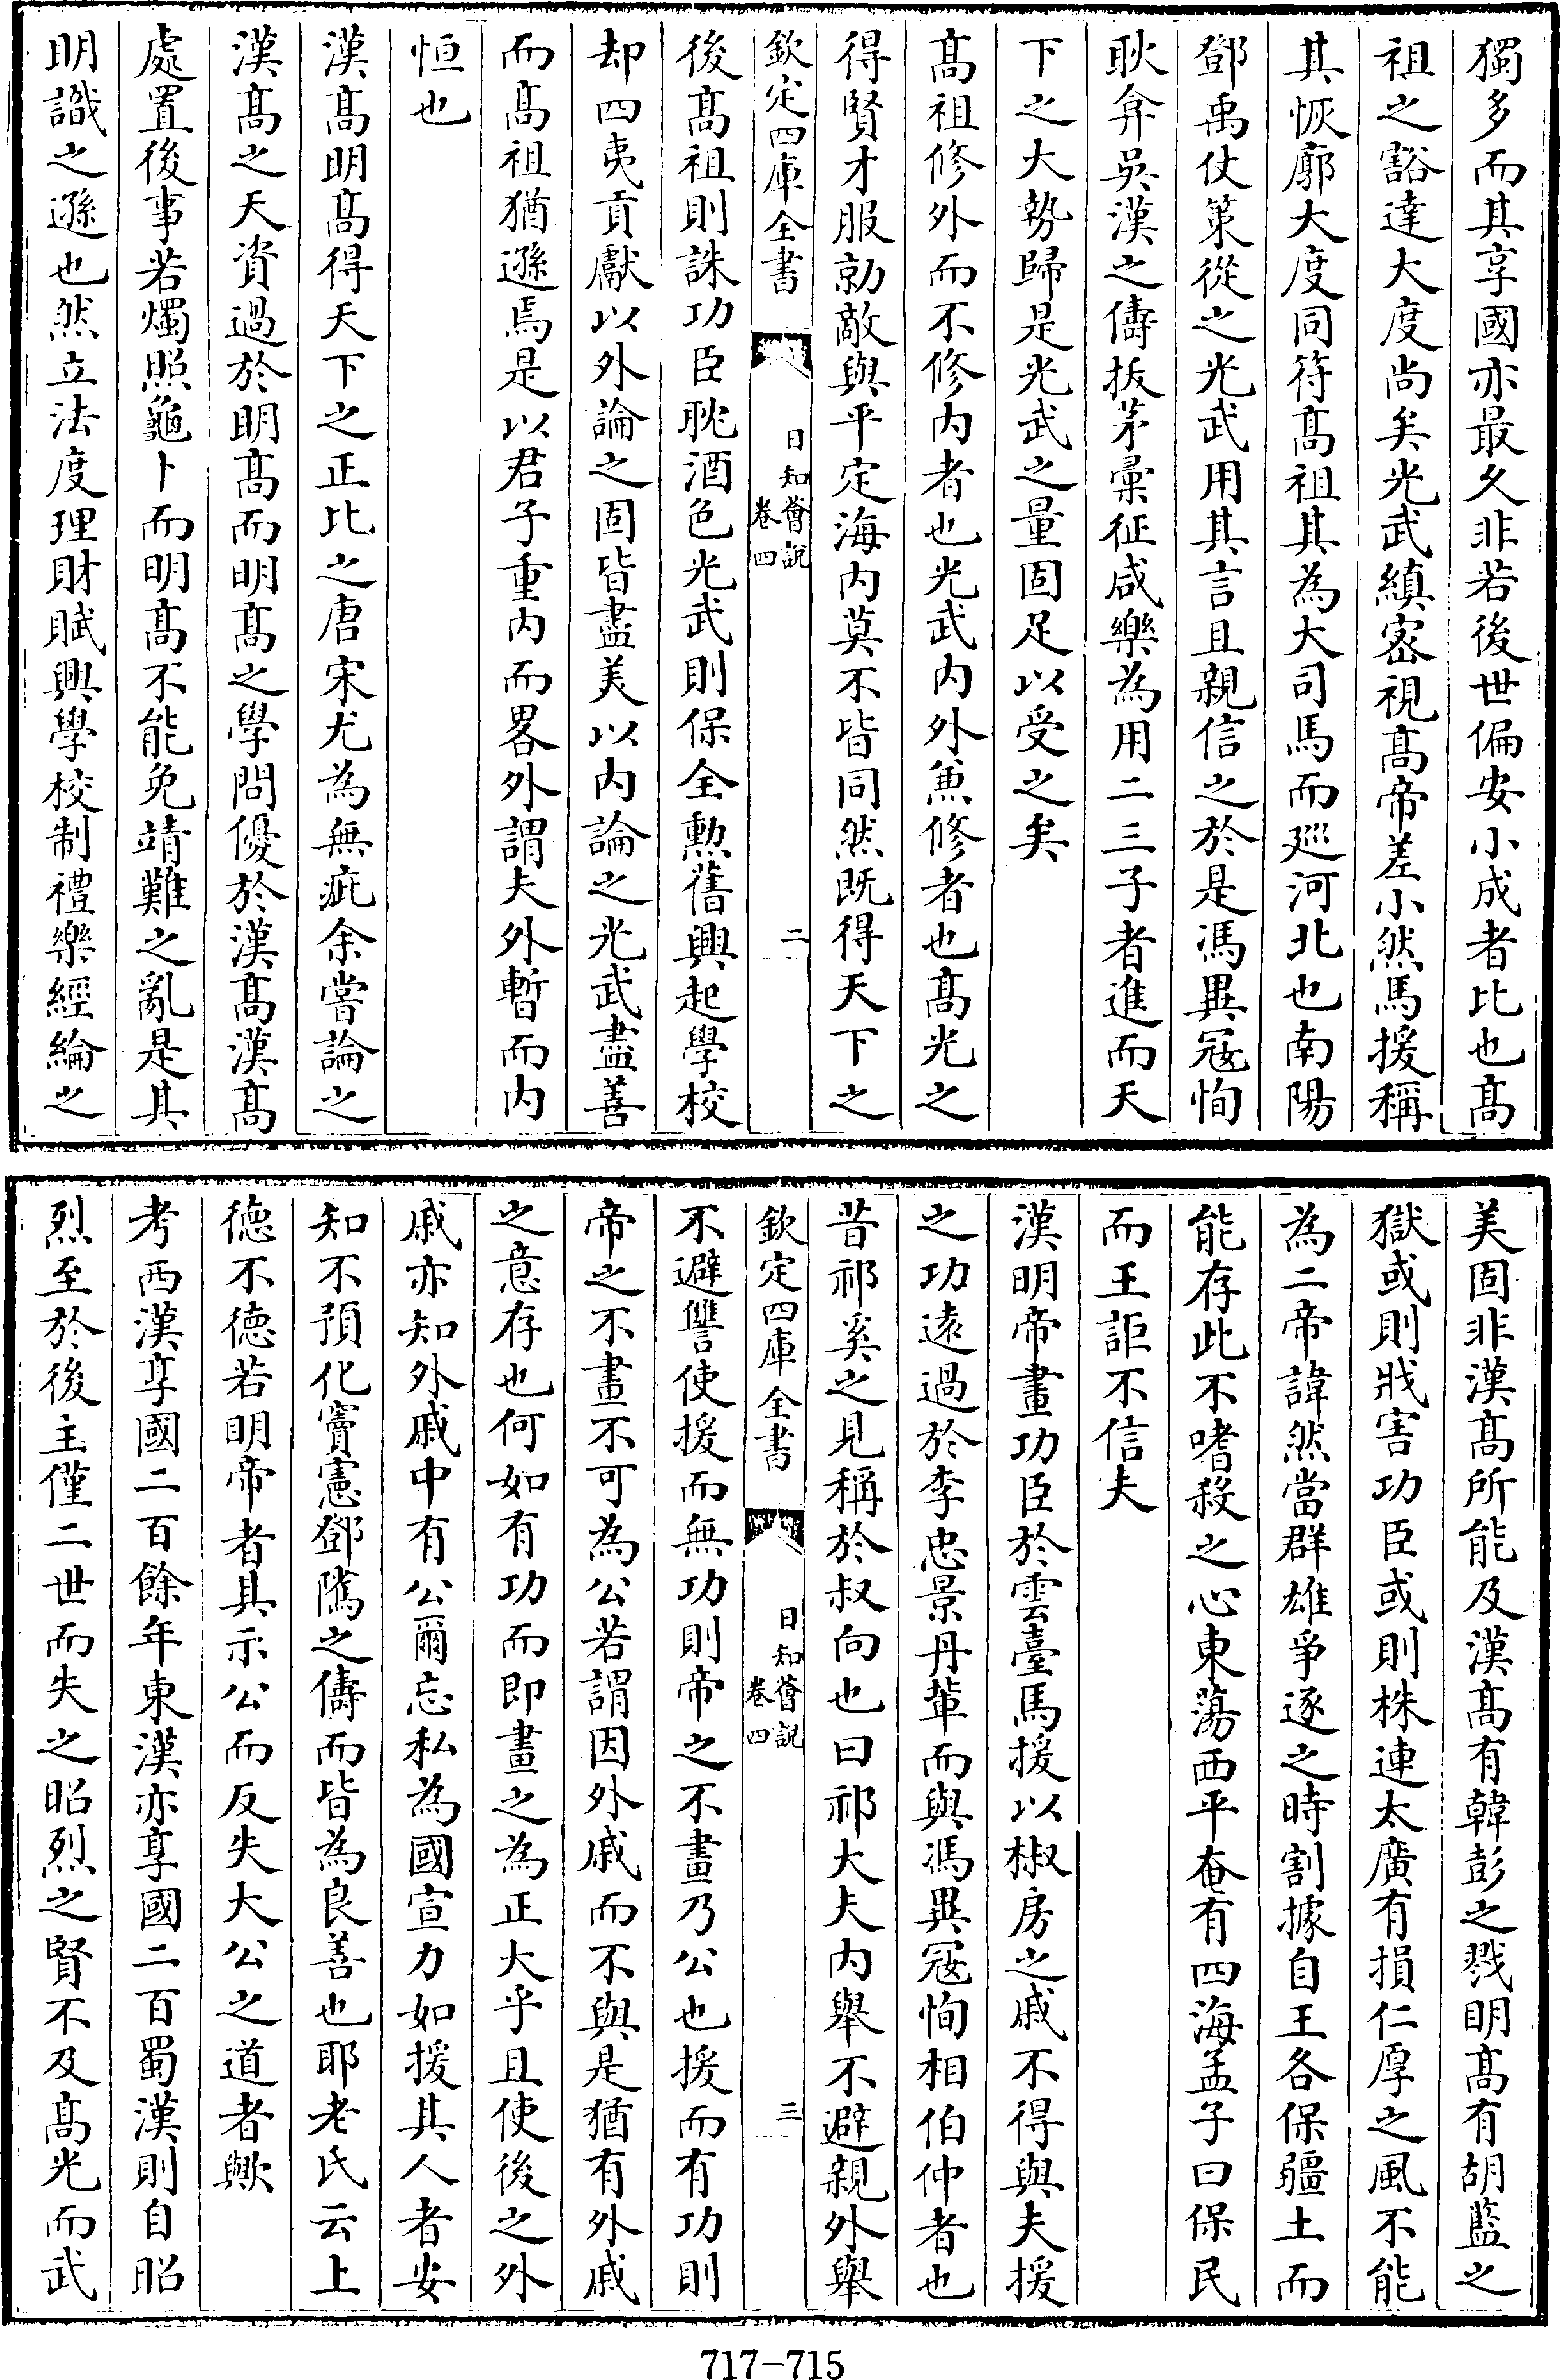 獨多而其享國亦最久非若後世偏安小成者比也髙
祖之豁達大度尚矣光武縝宻視髙帝差小然馬援稱
其恢廓大度同符髙祖其為大司馬而廵河北也南陽
鄧禹仗策從之光武用其言且親信之於是馮異冦恂
耿弇吳漢之儔拔茅彚征咸樂為用二三子者進而天
下之大勢歸是光武之量固足以受之矣
髙祖修外而不修内者也光武内外兼修者也髙光之
得賢才服勍敵與平定海内莫不皆同然既得天下之
欽定四庫全書
日知薈說
卷四
二
後髙祖則誅功臣耽酒色光武則保全勲舊興起學校
却四夷貢獻以外論之固皆盡美以内論之光武盡善
而髙祖猶遜焉是以君子重内而畧外謂夫外暫而内
恒也
漢髙明髙得天下之正比之唐宋尤為無疵余嘗論之
漢髙之天資過於明髙而明髙之學問優於漢髙漢髙
處置後事若燭照龜卜而明髙不能免靖難之亂是其
明識之遜也然立法度理財賦興學校制禮樂經綸之
美固非漢髙所能及漢髙有韓彭之戮明髙有胡藍之
獄或則戕害功臣或則株連太廣有損仁厚之風不能
為二帝諱然當群雄爭逐之時割據自王各保疆土而
能存此不嗜殺之心東蕩西平奄有四海孟子曰保民
而王詎不信夫
漢明帝畫功臣於雲臺馬援以椒房之戚不得與夫援
之功遠過於李忠景丹輩而與馮異冦恂相伯仲者也
昔祁奚之見稱於叔向也曰祁大夫内舉不避親外舉
欽定四庫全書
日知薈說
卷四
三
不避讐使援而無功則帝之不畫乃公也援而有功則
帝之不畫不可為公若謂因外戚而不與是猶有外戚
之意存也何如有功而即畫之為正大乎且使後之外
戚亦知外戚中有公爾忘私為國宣力如援其人者安
知不預化竇憲鄧隲之儔而皆為良善也耶老氏云上
德不德若明帝者其示公而反失大公之道者歟
考西漢享國二百餘年東漢亦享國二百蜀漢則自昭
烈至於後主僅二世而失之昭烈之賢不及髙光而武
717-715